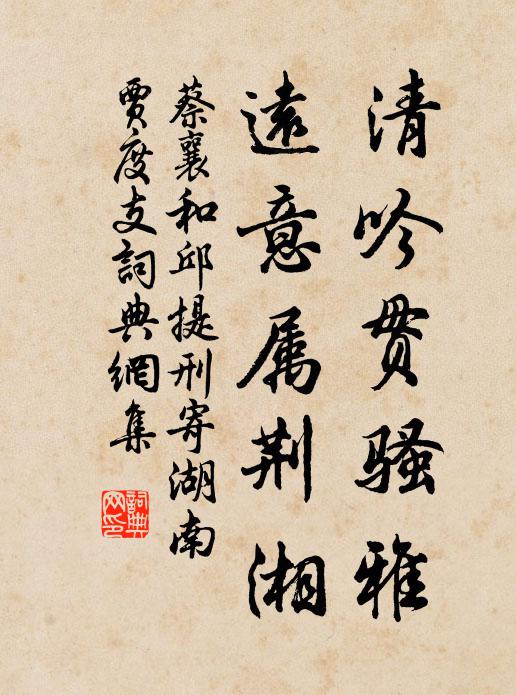 清吟贯骚雅
遠意属荆湘
蔡襄和邱提刑寄湖南
賈度支詞典網集
詞典网印